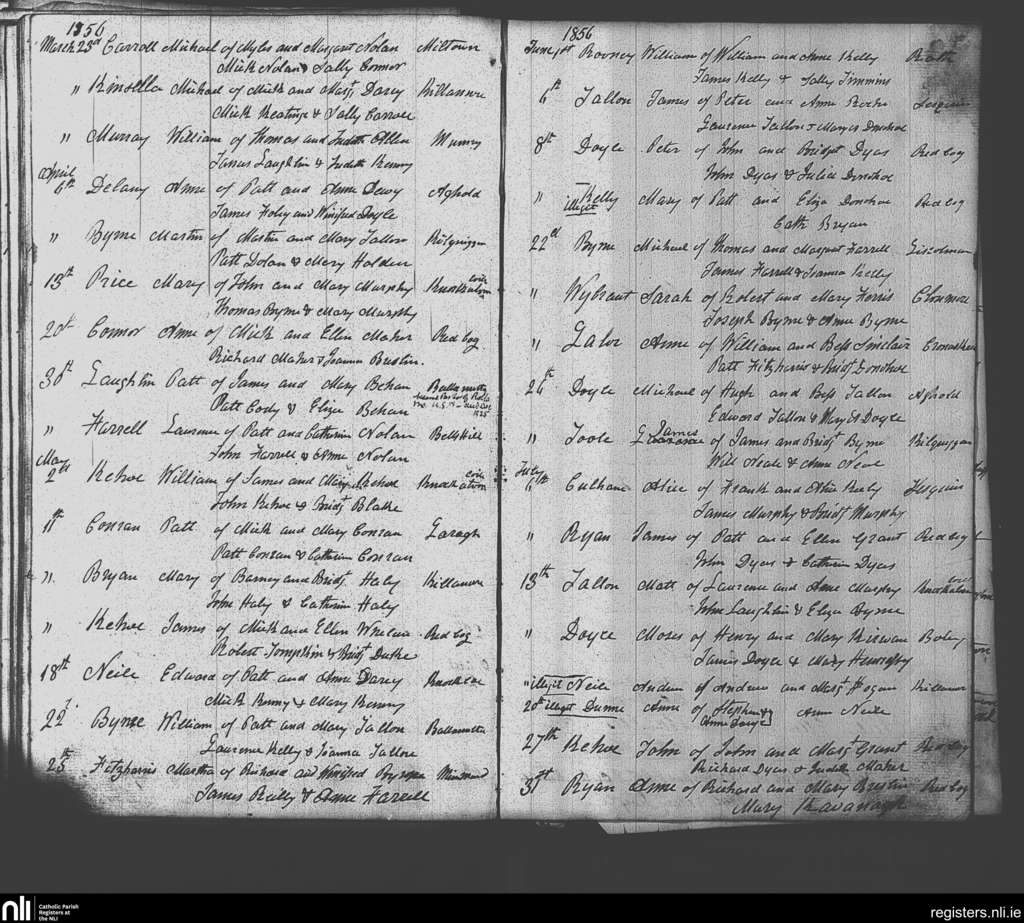 1856
March 23rd Carroll Michael of Myles and Margaret Nolan Miltown
Mick Nolan & Sally Connor
" Kinsella Michael of Mick and Margt Darcy Killanure
Mick Keatinge & Sally Carroll
" Murray William of Thomas and Judith Allen Munny
James Laughlin & Judith Kenny
April
6th Delany Anne of Patt and Anne Aghold
James Foley and Winifred Doyle
" Byrne Martin of Martin and Mary Tallon
Patt Dolan & Mary Holden
13th Price Mary of John and Mary Murphy Knockatom
Thomas Byrne & Mary Murphy
20th Connor Anne of Mick and Ellen Maher Red bog
Richard Maher & Joanna Breslin.
30th Laughlin Patt of James and Mary Behan
Patt Cody & Eliza Behan
" Farrell Laurence of Patt and Catherine Nolan
John Farrell & Anne Nolan
May
2nd Kehoe William of James and Mary Kehoe
John Kehoe & Bridt Blake
11th Conran Patt of Mick and Mary Conran
Patt Conran & Catherine Conran
" Bryan Mary of Barney and Bridt Haly Killanure
John Haly & Catherine Haly
" Kehoe James of Mick and Ellen Red bog
Robert Tompkin & Bridt
18th Neile Edward of Patt and Anne Darcy
Mick Kenny & Mary Kenny
22d Byrne William of Patt and Mary Tallon
Laurence Kelly & Joanna Tallon
25th Fitzharris Martha of Richard and Winifred Byrne
James Reilly & Anne Farrell
1856
June 1st Rooney William of William and Anne Kelly Rath
James Kelly & Sally Timmins
6th Tallon James of Peter and Anne
Laurence Tallon & Mary Donohoe
8th Doyle Peter of John and Bridget Dyas Red bog
John Dyas & Julia Donohoe
" illegit Kelly Mary of Patt and Eliza Donohoe Red bog
Cath Bryan
22d Byrne Michael of Thomas and Margaret Farrell Liscolman
James Farrell & Joanna Kelly
" Wybrant Sarah of Robert and Mary Clonmore
Joseph Byrne & Anne Byrne
" Anne of William and Bess Sinclair
Patt Fitzharris & Bridt Donohoe
24th Doyle Michael of Hugh and Bess Tallon Aghold
Edward Tallon & Mary Doyle
" Toole James of James and Bridt Byrne
Will Neale & Anne Neale
July
6th Culhane Alice of Frank and Alice
James Murphy & Bridt Murphy
" Ryan James of Patt and Ellen Grant Red bog
John Dyas & Catherine Dyas
13th Tallon Matt of Laurence and Anne Murphy
John Laughlin & Eliza Byrne
" Doyle Moses of Henry and Mary Kirwan
James Doyle & Mary
" illegit Neile Andrew of Andrew and Margt Hogan Killanure
20th illegit Dunne Anne of Stephen & Anne Neile
Anne Doyle
27th Kehoe John of John and Margt Grant Red bog
Richard Dyas & Judith Maher
31st Ryan Anne of Richard and Mary Breslin Red bog
Mary Kavanagh
nli
Catholic Parish
Registers at
the NLI
registers.nli.ie